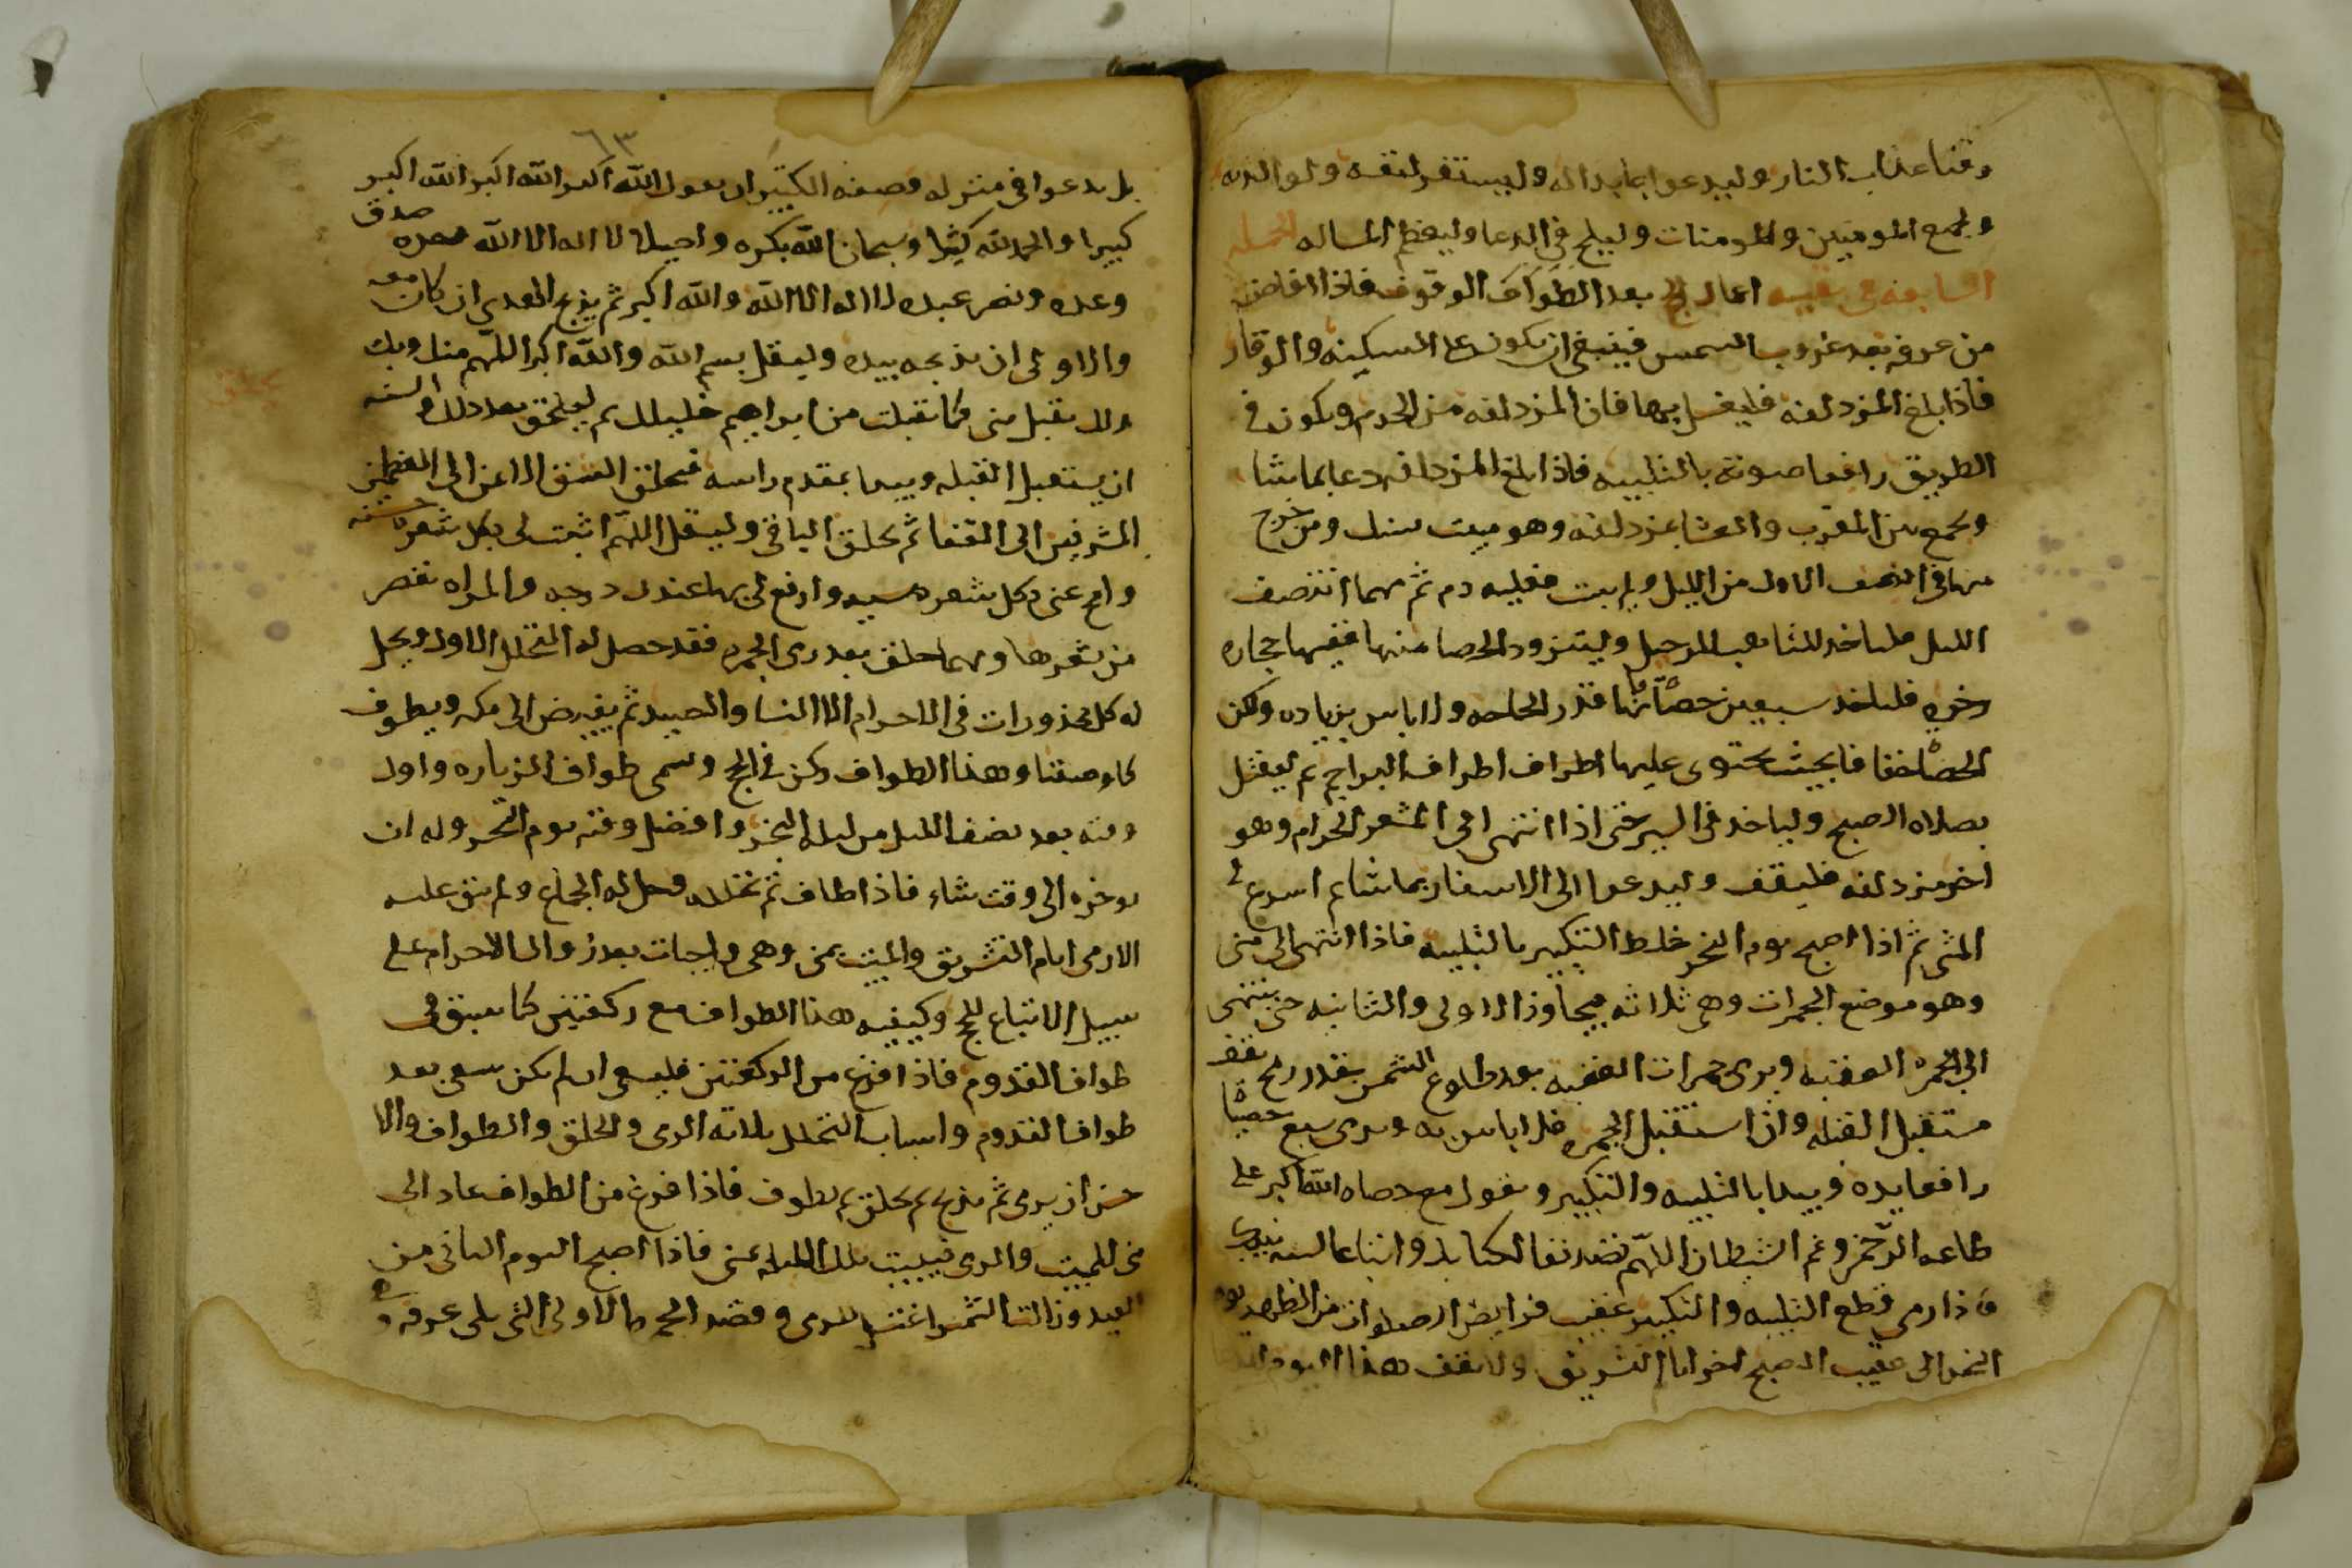 وقنا عذاب النار وليدعوا بما بدا له وليستغفر لنفسه ولوالديه
ولجميع المومنين والمومنات وليلح في الدعا وليعظم المساله الجمله
السابعه في بقيه اعمال الحج بعد الطواف الوقوف فاذا افاض
من عرفه بعد غروب الشمس فينبغي ان يكون على السكينه والوقار
فاذا بلغ المزدلفه فليغسل بها فان المزدلفه من الحرم ويكون في
الطريق رافعا صوته بالتلبيه فاذا بلغ المزدلفه دعا بما شا
وجمع بين المغرب والعشا بمزدلفه وهو مبيت نسك ومن خرج
منها في النصف الاول من الليل ولم يبت فعليه دم ثم مهما انتصف
الليل فلياخذ للتاهب للرحيل وليتزود الحصا منها ففيها حجاره
رخوه فلياخذ سبعين حصاه فانها قدر الحاجه ولا باس بزياده ولكن
الحصا خفافا بحيث يحتوى عليها اطراف اطراف البراجم ثم ليغتسل
بصلاه الصبح ولياخذ في السير حتى اذا انتهى الى المشعر الحرام وهو
اخر مزدلفه فليقف وليدعوا الى الاسفار بما شا ثم اسرع في
المشى ثم اذا اصبح يوم النحر خلط التكبير بالتلبيه فاذا انتهى الى منى
وهو موضع الجمرات وهي ثلاثه فيجاوز الاولى والثانيه حتى ينتهى
الى الجمره العقبه ويرمى جمرات العقبه بعد طلوع الشمس بقدر رمح يقف
مستقبل القبله وان استقبل الجمره فلا باس به ويرمى سبع حصيات
رافعا يده ويبدا بالتلبيه والتكبير ويقول مع حصاه الله اكبر على
طاعه الرحمن ورغم الشيطان اللهم تصديقا لكتابك واتباعا لسنه نبيك
فاذا رمى قطع التلبيه والتكبير عقيب فرايض الصلوات من الظهر يوم
النحر الى عقيب الصبح اخر ايام التشريق ولا يقف هذا اليوم
٦٣
بل يدعوا في منزله وصفه التكبير ان يقول الله اكبر الله اكبر الله اكبر
كبيرا والحمد لله كثيرا وسبحان الله بكره واصيلا لا اله الا الله وحده صدق
وعده ونصر عبده لا اله الا الله والله اكبر ثم يذبح الهدي ان كان معه
والاولى ان يذبحه بيده وليقل بسم الله والله اكبر اللهم منك وبك
ولك تقبل مني كما تقبلت من ابراهيم خليلك ثم ليحلق بعد ذلك والسنه
ان يستقبل القبله ويبدا بمقدم راسه فيحلق الشق الايمن الى العظمين
المشرفين الى القفا ثم يحلق الباقي وليقل اللهم اثبت لى بكل شعره حسنه
وامح عنى بكل شعره سييه وارفع لى بها عندك درجه والمراه تقصر
من شعرها ومهما حلق بعد رمى الجمره فقد حصل له التحلل الاول ويحل
له كل محذورات في الاحرام الا النسا والصيد ثم يفيض الى مكه ويطوف
كما وصفنا وهذا الطواف ركن في الحج ويسمى طواف الزياره واول
وقته بعد نصف الليل من ليله النحر وافضل وقته يوم النحر وله ان
يوخره الى وقت شاء فاذا طاف ثم تحلله وحل له الجماع ولم يبق عليه
الا رمى ايام التشريق والمبيت بمنى وهى واجبات بعد زوال الاحرام على
سبيل الاتباع للحج وكيفيه هذا الطواف مع ركعتين كما سبق في
طواف القدوم فاذا فرغ من الركعتين فليسعى ان لم يكن سعى بعد
طواف القدوم واسباب التحلل ثلاثه الرمى والحلق والطواف والا
حسن ان يرمى ثم يذبح ثم يحلق ثم يطوف فاذا فرغ من الطواف عاد الى
منى للمبيت والرمى فيبيت تلك الليله بمنى فاذا اصبح اليوم الثانى من
العيد وزالت الشمس اغتسل للرمى وقصد الجمره الاولى التى يلى عرفه و